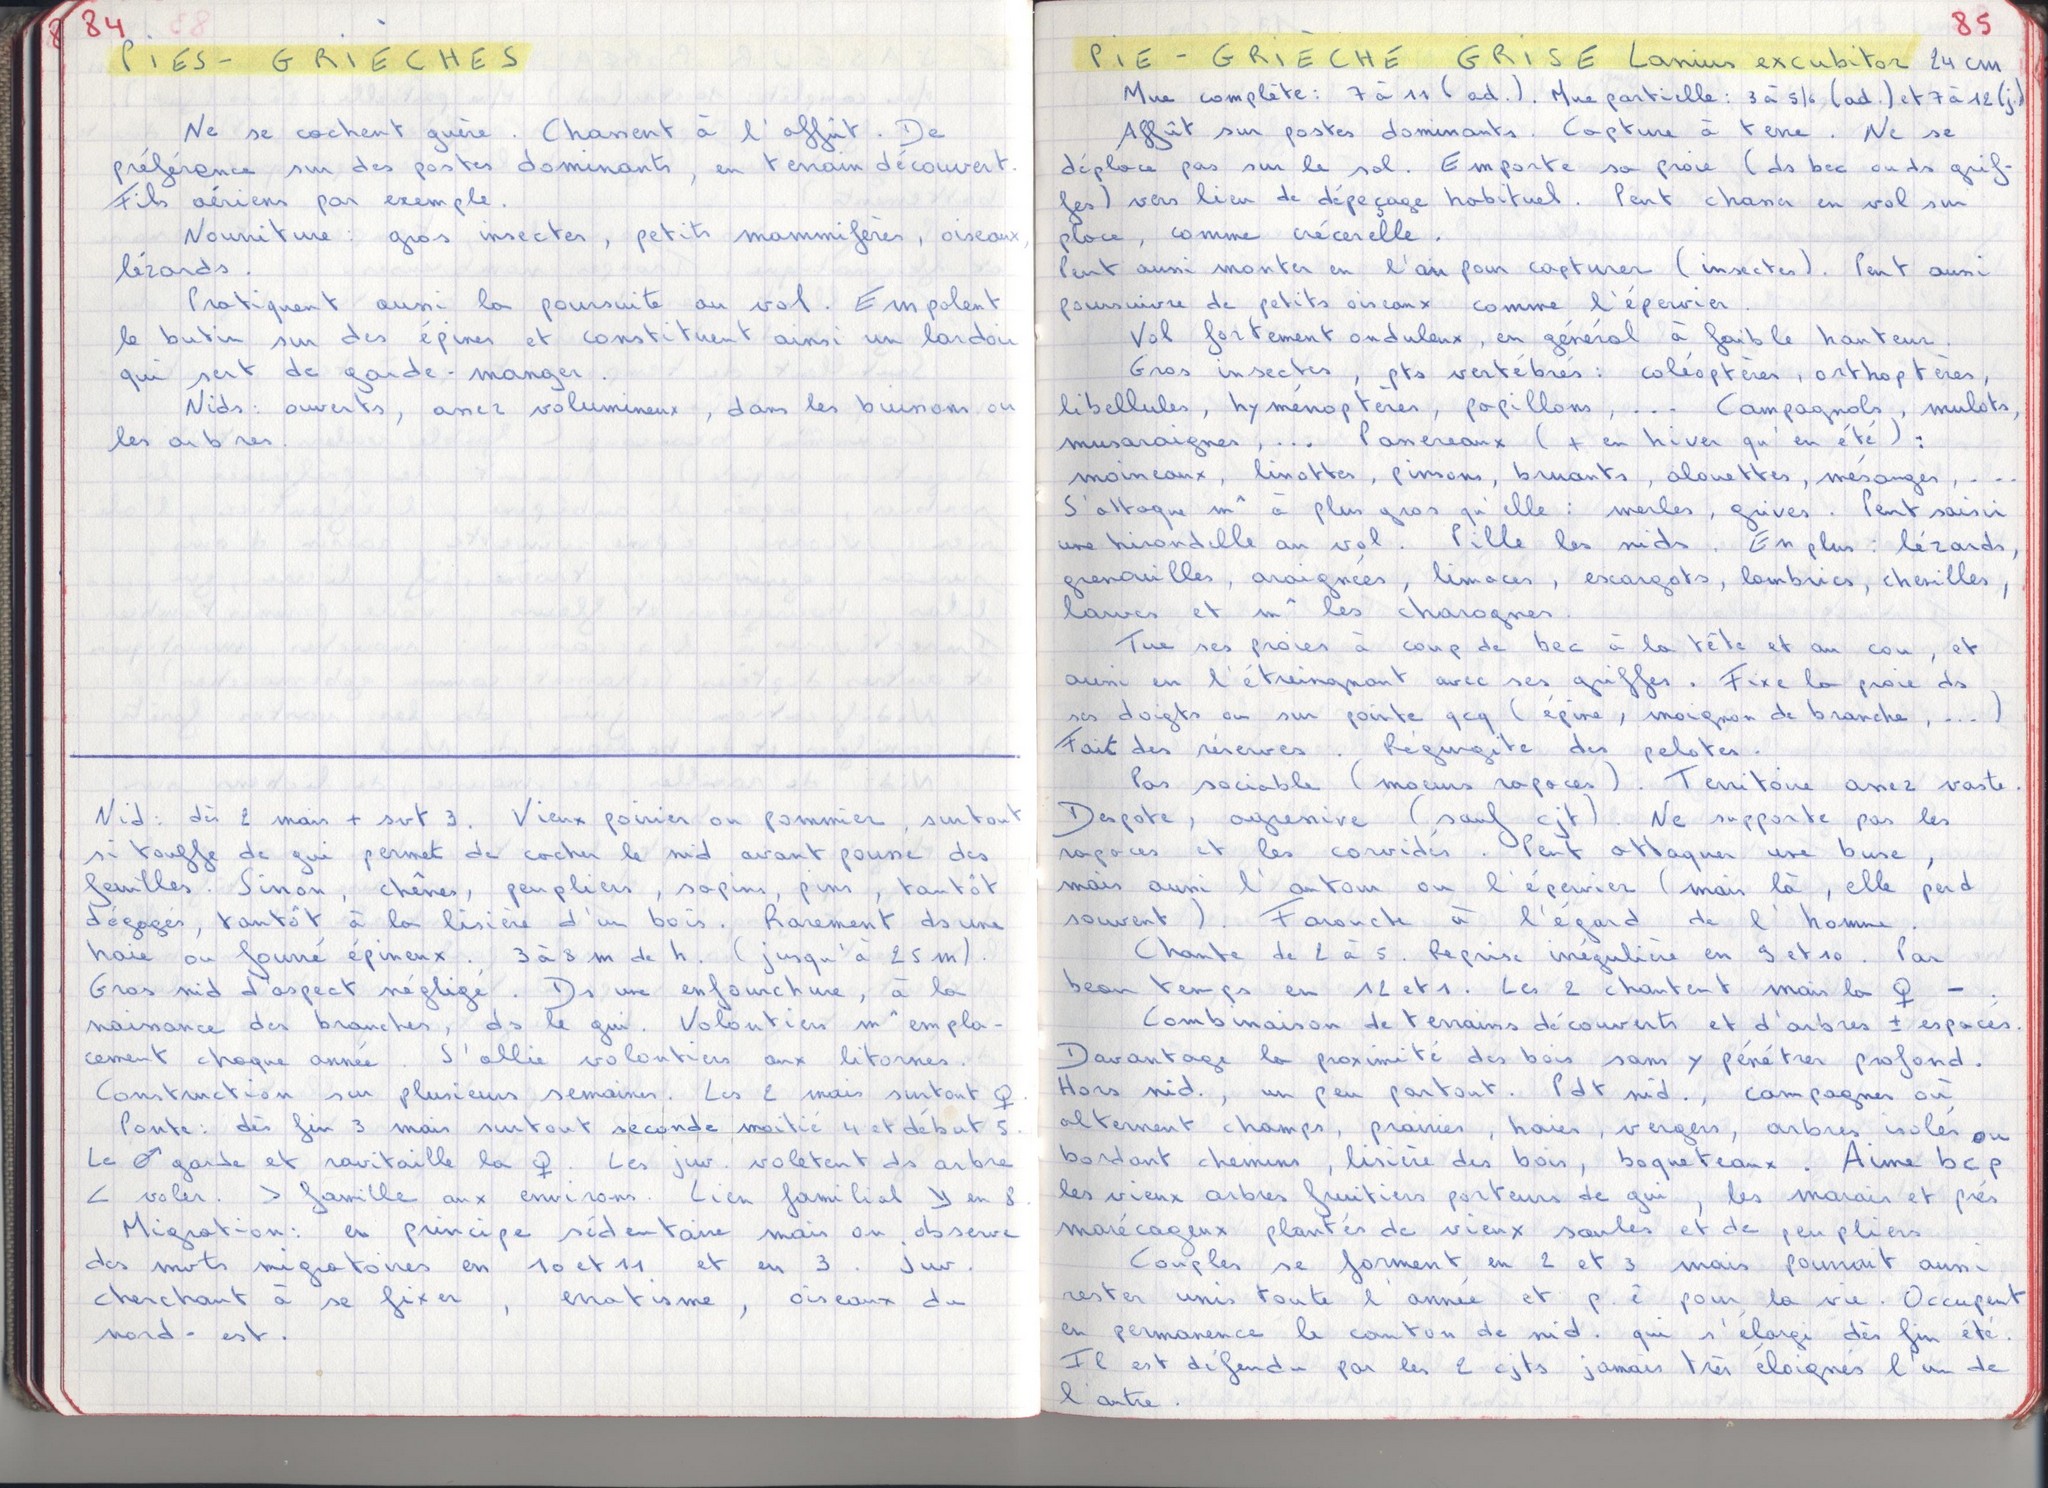 84
PIES-GRIÈCHES
Ne se cachent guère. Chassent à l'affût. De
préférence sur des postes dominants, en terrain découvert.
Fils aériens par exemple.
Nourriture : gros insectes, petits mammifères, oiseaux,
lézards.
Pratiquent aussi la poursuite au vol. Empalent
le butin sur des épines et constituent ainsi un lardoir
qui sert de garde-manger.
Nids : ouverts, assez volumineux, dans les buissons ou
les arbres.
Nid : dès 2 mais + svt 3. Vieux poirier ou pommier, surtout
si touffe de gui permet de cacher le nid avant pousse des
feuilles. Sinon, chênes, peupliers, sapins, pins, tantôt
dégagés, tantôt à la lisière d'un bois. Rarement ds une
haie ou fourré épineux. 3 à 8 m de h. (jusqu'à 25 m).
Gros nid d'aspect négligé. Ds une enfourchure, à la
naissance des branches, ds le gui. Volontiers m^ empla-
cement chaque année. S'allie volontiers aux litornes.
Construction sur plusieurs semaines. Les 2 mais surtout ♀.
Ponte : dès fin 3 mais surtout seconde moitié 4 et début 5.
Le ♂ garde et ravitaille la ♀. Les juv. volètent ds arbre
< voler. > famille aux environs. Lien familial ↘ en 8.
Migration : en principe sédentaire mais on observe
des mvts migratoires en 10 et 11 et en 3. Juv.
cherchant à se fixer, erratisme, oiseaux du
nord-est.
85
PIE-GRIÈCHE GRISE Lanius excubitor 24 cm
Mue complète : 7 à 11 (ad.). Mue partielle : 3 à 5/6 (ad.) et 7 à 12 (j.)
Affût sur postes dominants. Capture à terre. Ne se
déplace pas sur le sol. Emporte sa proie (ds bec ou ds grif-
fes) vers lieu de dépeçage habituel. Peut chasser en vol sur
place, comme crécerelle.
Peut aussi monter en l'air pour capturer (insectes). Peut aussi
poursuivre de petits oiseaux comme l'épervier.
Vol fortement onduleux, en général à faible hauteur.
Gros insectes, pts vertébrés : coléoptères, orthoptères,
libellules, hyménoptères, papillons, ... Campagnols, mulots,
musaraignes, ... Passereaux (+ en hiver qu'en été) :
moineaux, linottes, pinsons, bruants, alouettes, mésanges, ...
S'attaque m^ à plus gros qu'elle : merles, grives. Peut saisir
une hirondelle au vol. Pille les nids. En plus : lézards,
grenouilles, araignées, limaces, escargots, lombrics, chenilles,
larves et m^ les charognes.
Tue ses proies à coup de bec à la tête et au cou, et
aussi en l'étreingnant avec ses griffes. Fixe la proie ds
ses doigts ou sur pointe qcq (épine, moignon de branche, ...)
Fait des réserves. Régurgite des pelotes.
Pas sociable (moeurs rapaces). Territoire assez vaste.
Despote, agressive (sauf cjt). Ne supporte pas les
rapaces et les corvidés. Peut attaquer une buse,
mais aussi l'autour ou l'épervier (mais là, elle perd
souvent). Farouche à l'égard de l'homme.
Chante de 2 à 5. Reprise irrégulière en 9 et 10. Par
beau temps en 12 et 1. Les 2 chantent mais la ♀ -.
Combinaison de terrains découverts et d'arbres ± espacés.
Davantage la proximité des bois sans y pénétrer profond.
Hors nid., un peu partout. Pdt nid., campagnes où
alternent champs, prairies, haies, vergers, arbres isolés ou
bordant chemins, lisière des bois, boqueteaux. Aime bcp
les vieux arbres fruitiers porteurs de gui, les marais et prés
marécageux plantés de vieux saules et de peupliers
Couples se forment en 2 et 3 mais pourrait aussi
rester unis toute l'année et p. ê pour la vie. Occupent
en permanence le canton de nid. qui s'élargi dès fin été.
Il est défendu par les 2 cjts jamais très éloignés l'un de
l'autre.